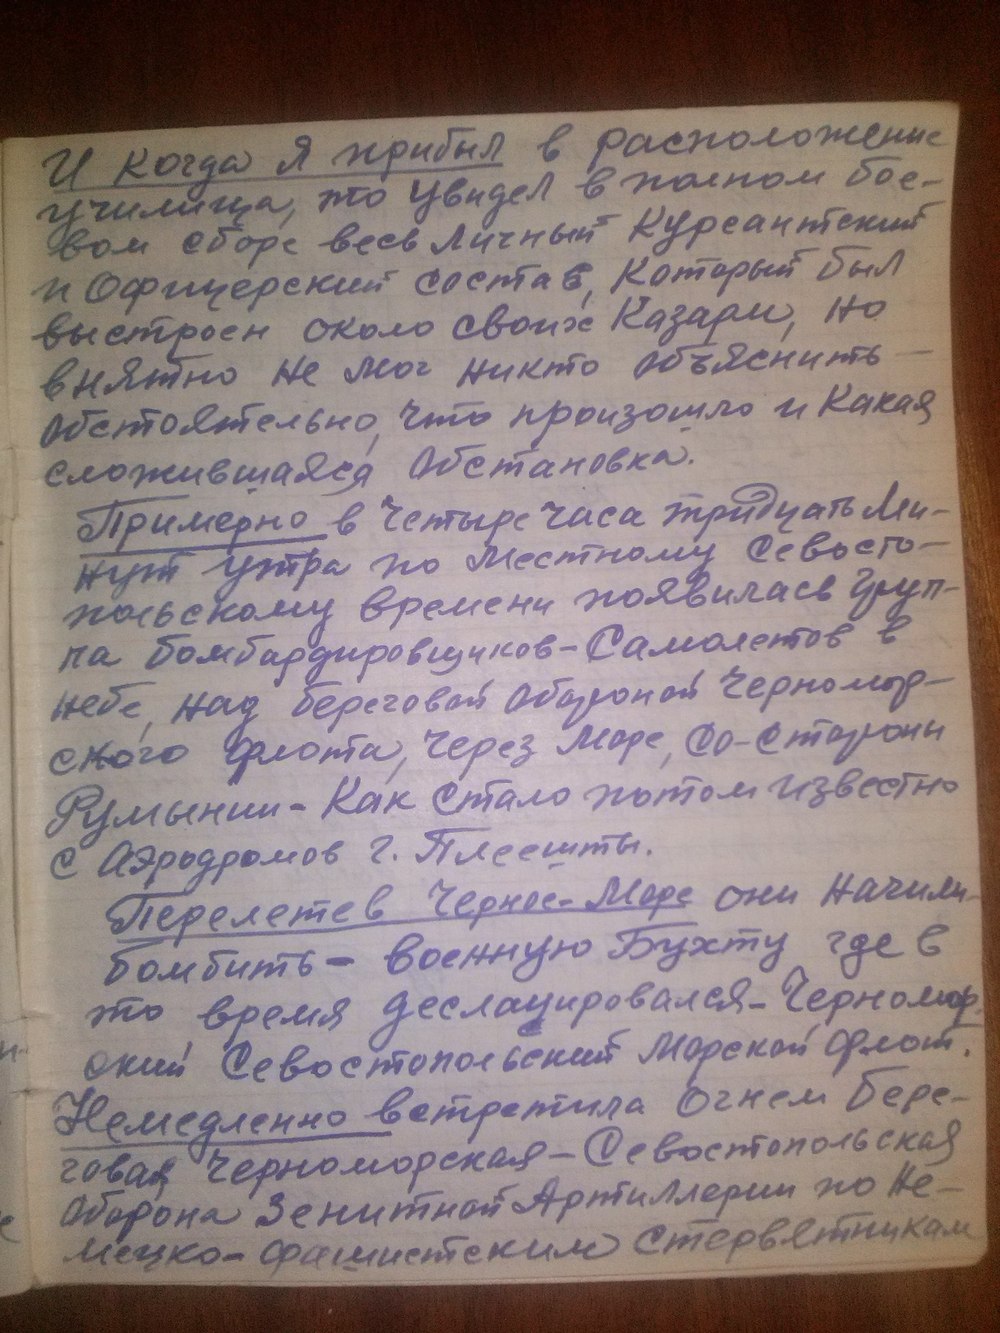 И когда я прибыл в расположение
училища, то увидел в полном бое-
вом сборе весь личный Курсантский
и Офицерский состав, который был
выстроен около своих Казарм, но
внятно не мог никто объяснить
обстоятельно, что произошло и какая
сложившаяся обстановка.
Примерно в четыре часа тридцать ми-
нут утра по местному Севосто-
польскому времени появилась груп-
па бомбардировщиков-самолетов в
небе, над береговой обороной Черномор-
ского флота, через море, со-стороны
Румынии - Как стало потом известно
с Аэродромов г. Плеешты.
Перелетев Черное-Море они начили
бомбить - военную Бухту где в
то время деслацировался - Черномор-
ский Севостопольский морской флот.
Немедленно встретила огнем бере-
говая Черноморская - Севостопольская
оборона Зенитной Артиллерии по не-
мецко-фашистским стервятникам